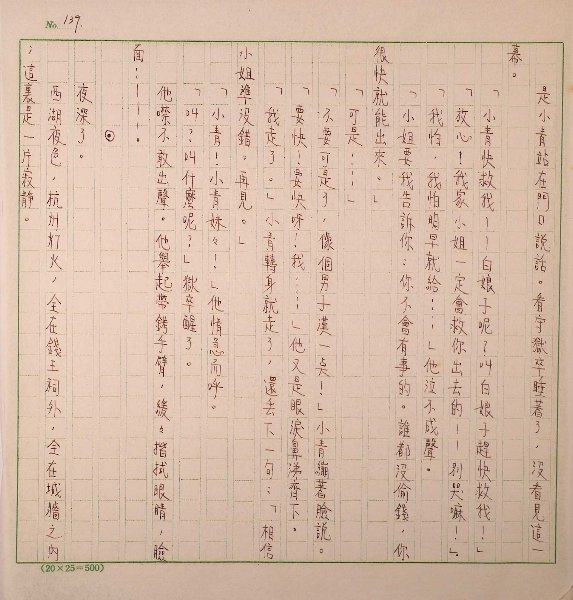 No. 139.
是小青站在門口說話。看守獄卒睡著了，沒看見這一
幕。
「小青快救我！！白娘子呢？叫白娘子趕快救我！」
「放心！我家小姐一定會救你出去的！！別哭嘛！」
「我怕，我怕明早就給⋯⋯」他泣不成聲。
「小姐要我告訴你：你不會有事的。誰都沒偷錢，你
很快就能出來。」
「可是⋯⋯」
「不要可是了，像個男子漢一点！」小青繃著臉說。
「要快！要快呀！我⋯⋯」他又是眼淚鼻涕齊下。
「我走了。」小青轉身就走了，還丟下一句：「相信
小姐準沒錯。再見。」
「小青！小青妹々！」他情急而呼。
「叫？叫什麼呢？」獄卒醒了。
他噤不敢出聲。他舉起帶銬手臂，緩々揩拭眼睛，臉
面⋯⋯。
⊙
夜深了。
西湖夜色，杭州灯火，全在錢王祠外，全在城牆之內
；這裏是一片寂静。
(20×25=500)